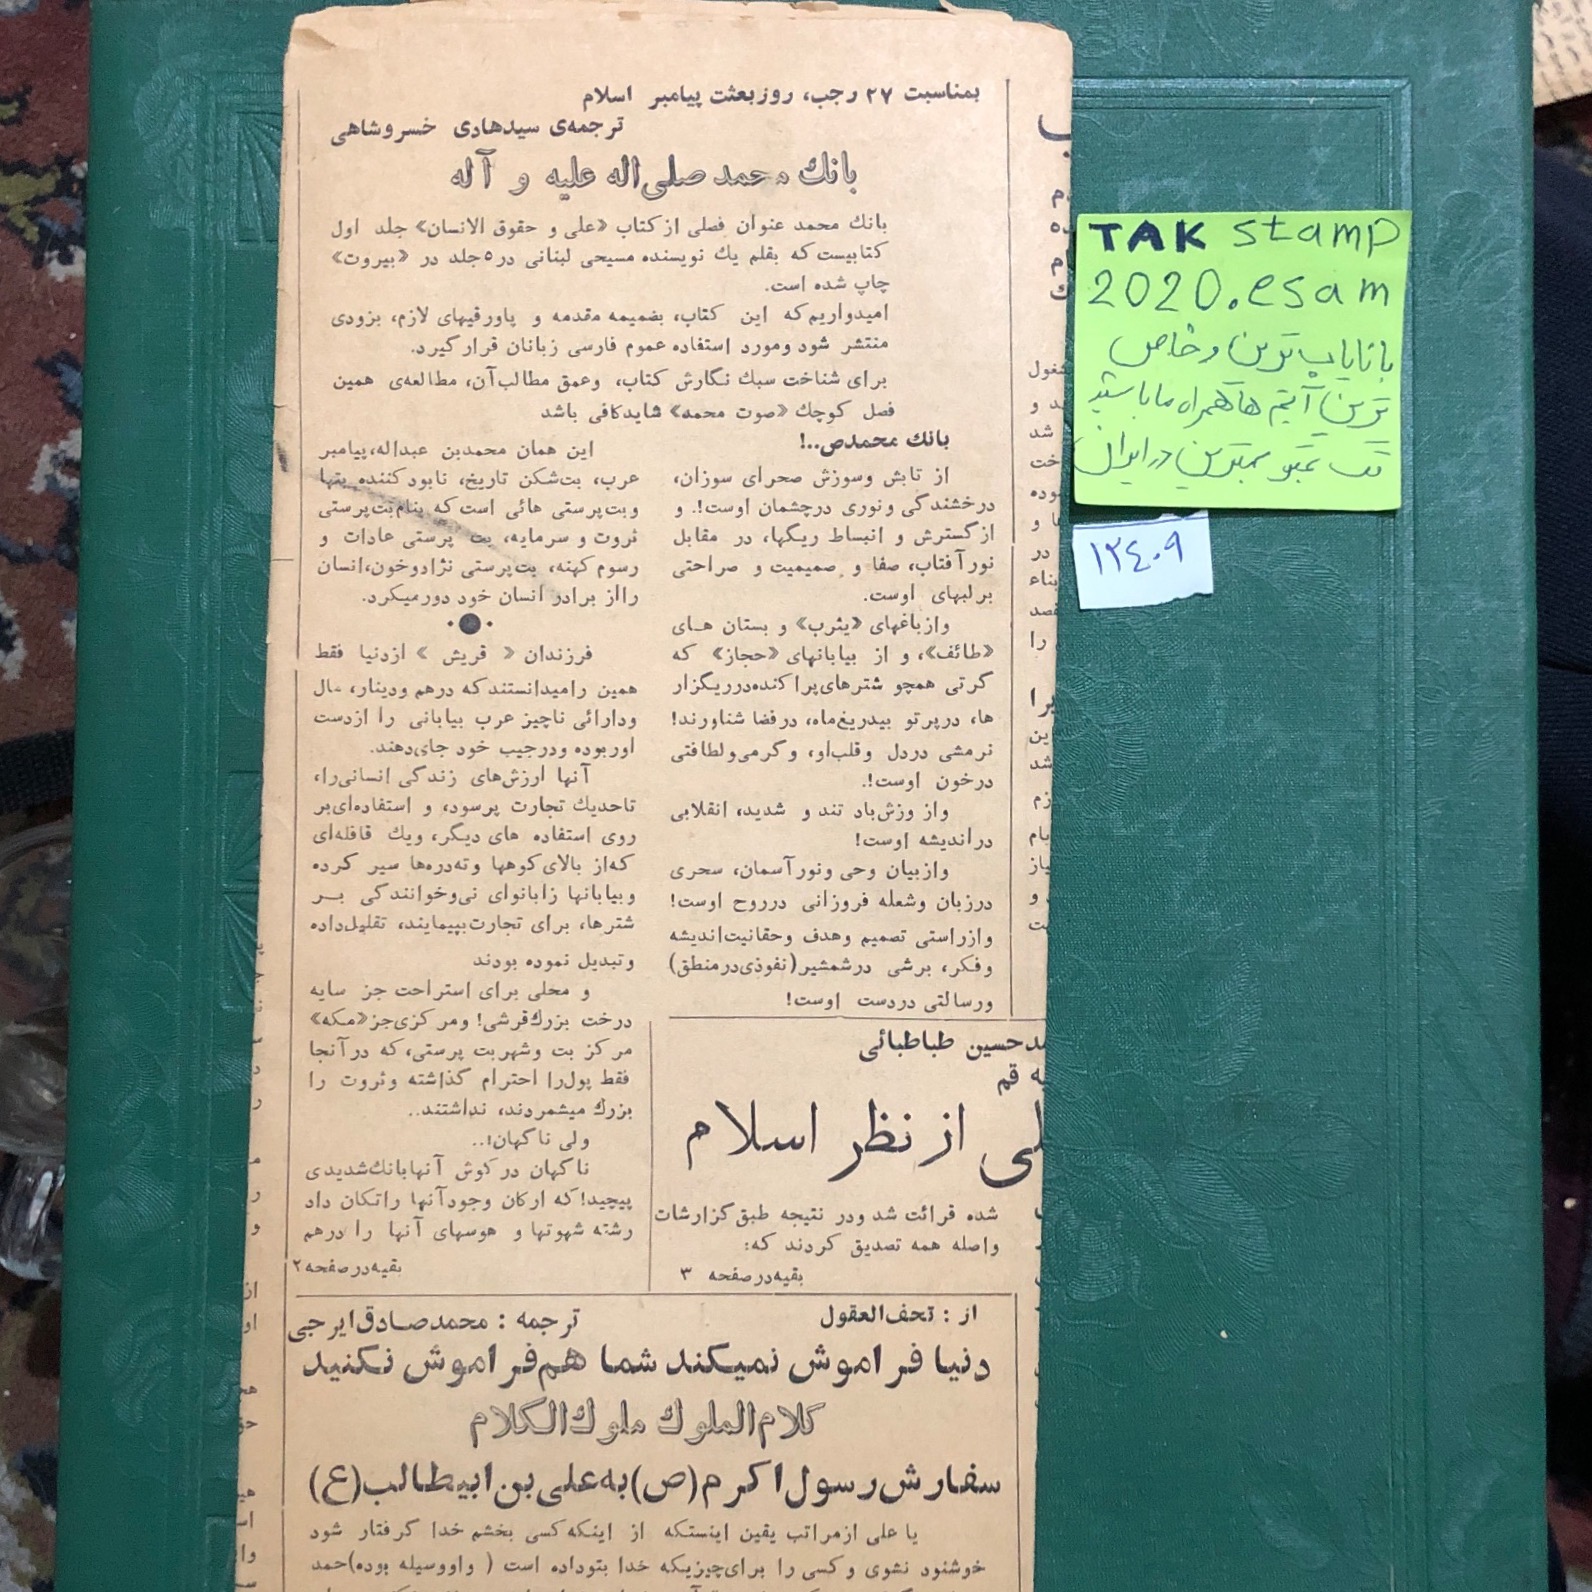 بمناسبت ۲۷ رجب، روز بعثت پیامبر اسلام
ترجمه‌ی سیدهادی خسروشاهی
بانك محمد صلی‌اله علیه و آله
بانك محمد عنوان فصلی از کتاب «علی و حقوق الانسان» جلد اول
کتابیست که بقلم یك نویسنده مسیحی لبنانی در ۵ جلد در «بیروت»
چاپ شده است.
امیدواریم که این کتاب، بضمیمه مقدمه و پاورقیهای لازم، بزودی
منتشر شود ومورد استفاده عموم فارسی زبانان قرار گیرد.
برای شناخت سبك نگارش کتاب، وعمق مطالب آن، مطالعه‌ی همین
فصل کوچك «صوت محمد» شاید کافی باشد
بانك محمدص..!
از تابش وسوزش صحرای سوزان،
درخشندگی ونوری درچشمان اوست!. و
از گسترش و انبساط ریگها، در مقابل
نور آفتاب، صفا و صمیمیت و صراحتی
برلبهای اوست.
وازباغهای «یثرب» و بستان هـای
«طائف»، و از بیابانهای «حجاز» که
گرتی همچو شترهای پراکنده درریگزار
ها، درپرتو بیدریغ ماه، درفضا شناورند!
نرمشی دردل وقلب او، وگرمی ولطافتی
درخون اوست!.
واز وزش باد تند و شدید، انقلابی
دراندیشه اوست!
وازبیان وحی ونور آسمان، سحری
درزبان وشعله فروزانی درروح اوست!
وازراستی تصمیم وهدف وحقانیت اندیشه
وفکر، برشی درشمشیر(نفوذی درمنطق)
ورسالتی دردست اوست!
این همان محمدبن عبداله، پیامبر
عرب، بت‌شکن تاریخ، نابود کننده بتها
وبت‌پرستی هائی است که بنام بت‌پرستی
ثروت و سرمایه، بت پرستی عادات و
رسوم کهنه، بت‌پرستی نژادوخون، انسان
رااز برادر انسان خود دورمیکرد.
فرزندان « قریش » ازدنیا فقط
همین رامیدانستند که درهم ودینار، مال
ودارائی ناچیز عرب بیابانی را ازدست
اوربوده ودرجیب خود جای‌دهند.
آنها ارزش‌های زندگی انسانی را،
تاحدیك تجارت پرسود، و استفاده‌ای‌بر
روی استفاده های دیگر، ویك قافله‌ای
که‌از بالای کوهها وته‌دره‌ها سیر کرده
وبیابانها رابانوای نی‌وخوانندگی بــر
شترها، برای تجارت بپیمایند، تقلیل داده
وتبدیل نموده بودند
و محلی برای استراحت جز سایه
درخت بزرك قرشی! ومرکزی جز «مکه»
مرکز بت وشهربت پرستی، که درآنجا
فقط پول را احترام گذاشته وثروت را
بزرك میشمردند، نداشتند..
ولی ناکهان!..
ناکهان درکوش آنهابانك شدیدی
پیچید! که ارکان وجود آنها راتکان داد
رشته شهوتها و هوسهای آنها را درهم
بقیه در صفحه ۲
مدحسین طباطبائی
یه قم
لی از نظر اسلام
شده قرائت شد ودر نتیجه طبق گزارشات
واصله همه تصدیق کردند که:
بقیه در صفحه ۳
از : تحف‌العقول
ترجمه : محمدصادق ایرجی
دنیا فراموش نمیکند شما هم فراموش نکنید
کلام الملوك ملوك الکلام
سفارش رسول اکرم (ص) به علی بن ابیطالب (ع)
یا علی ازمراتب یقین اینستکه از اینکه کسی بخشم خدا گرفتار شود
خوشنود نشوی و کسی را برای چیزیکه خدا بتوداده است ( واووسیله بوده) حمد
TAK stamp
2020.esam
با نایاب ترین و خاص
ترین آیتم ها همراه ما باشید
تک تمبر بهترین در ایران
۱۲۴۰۹